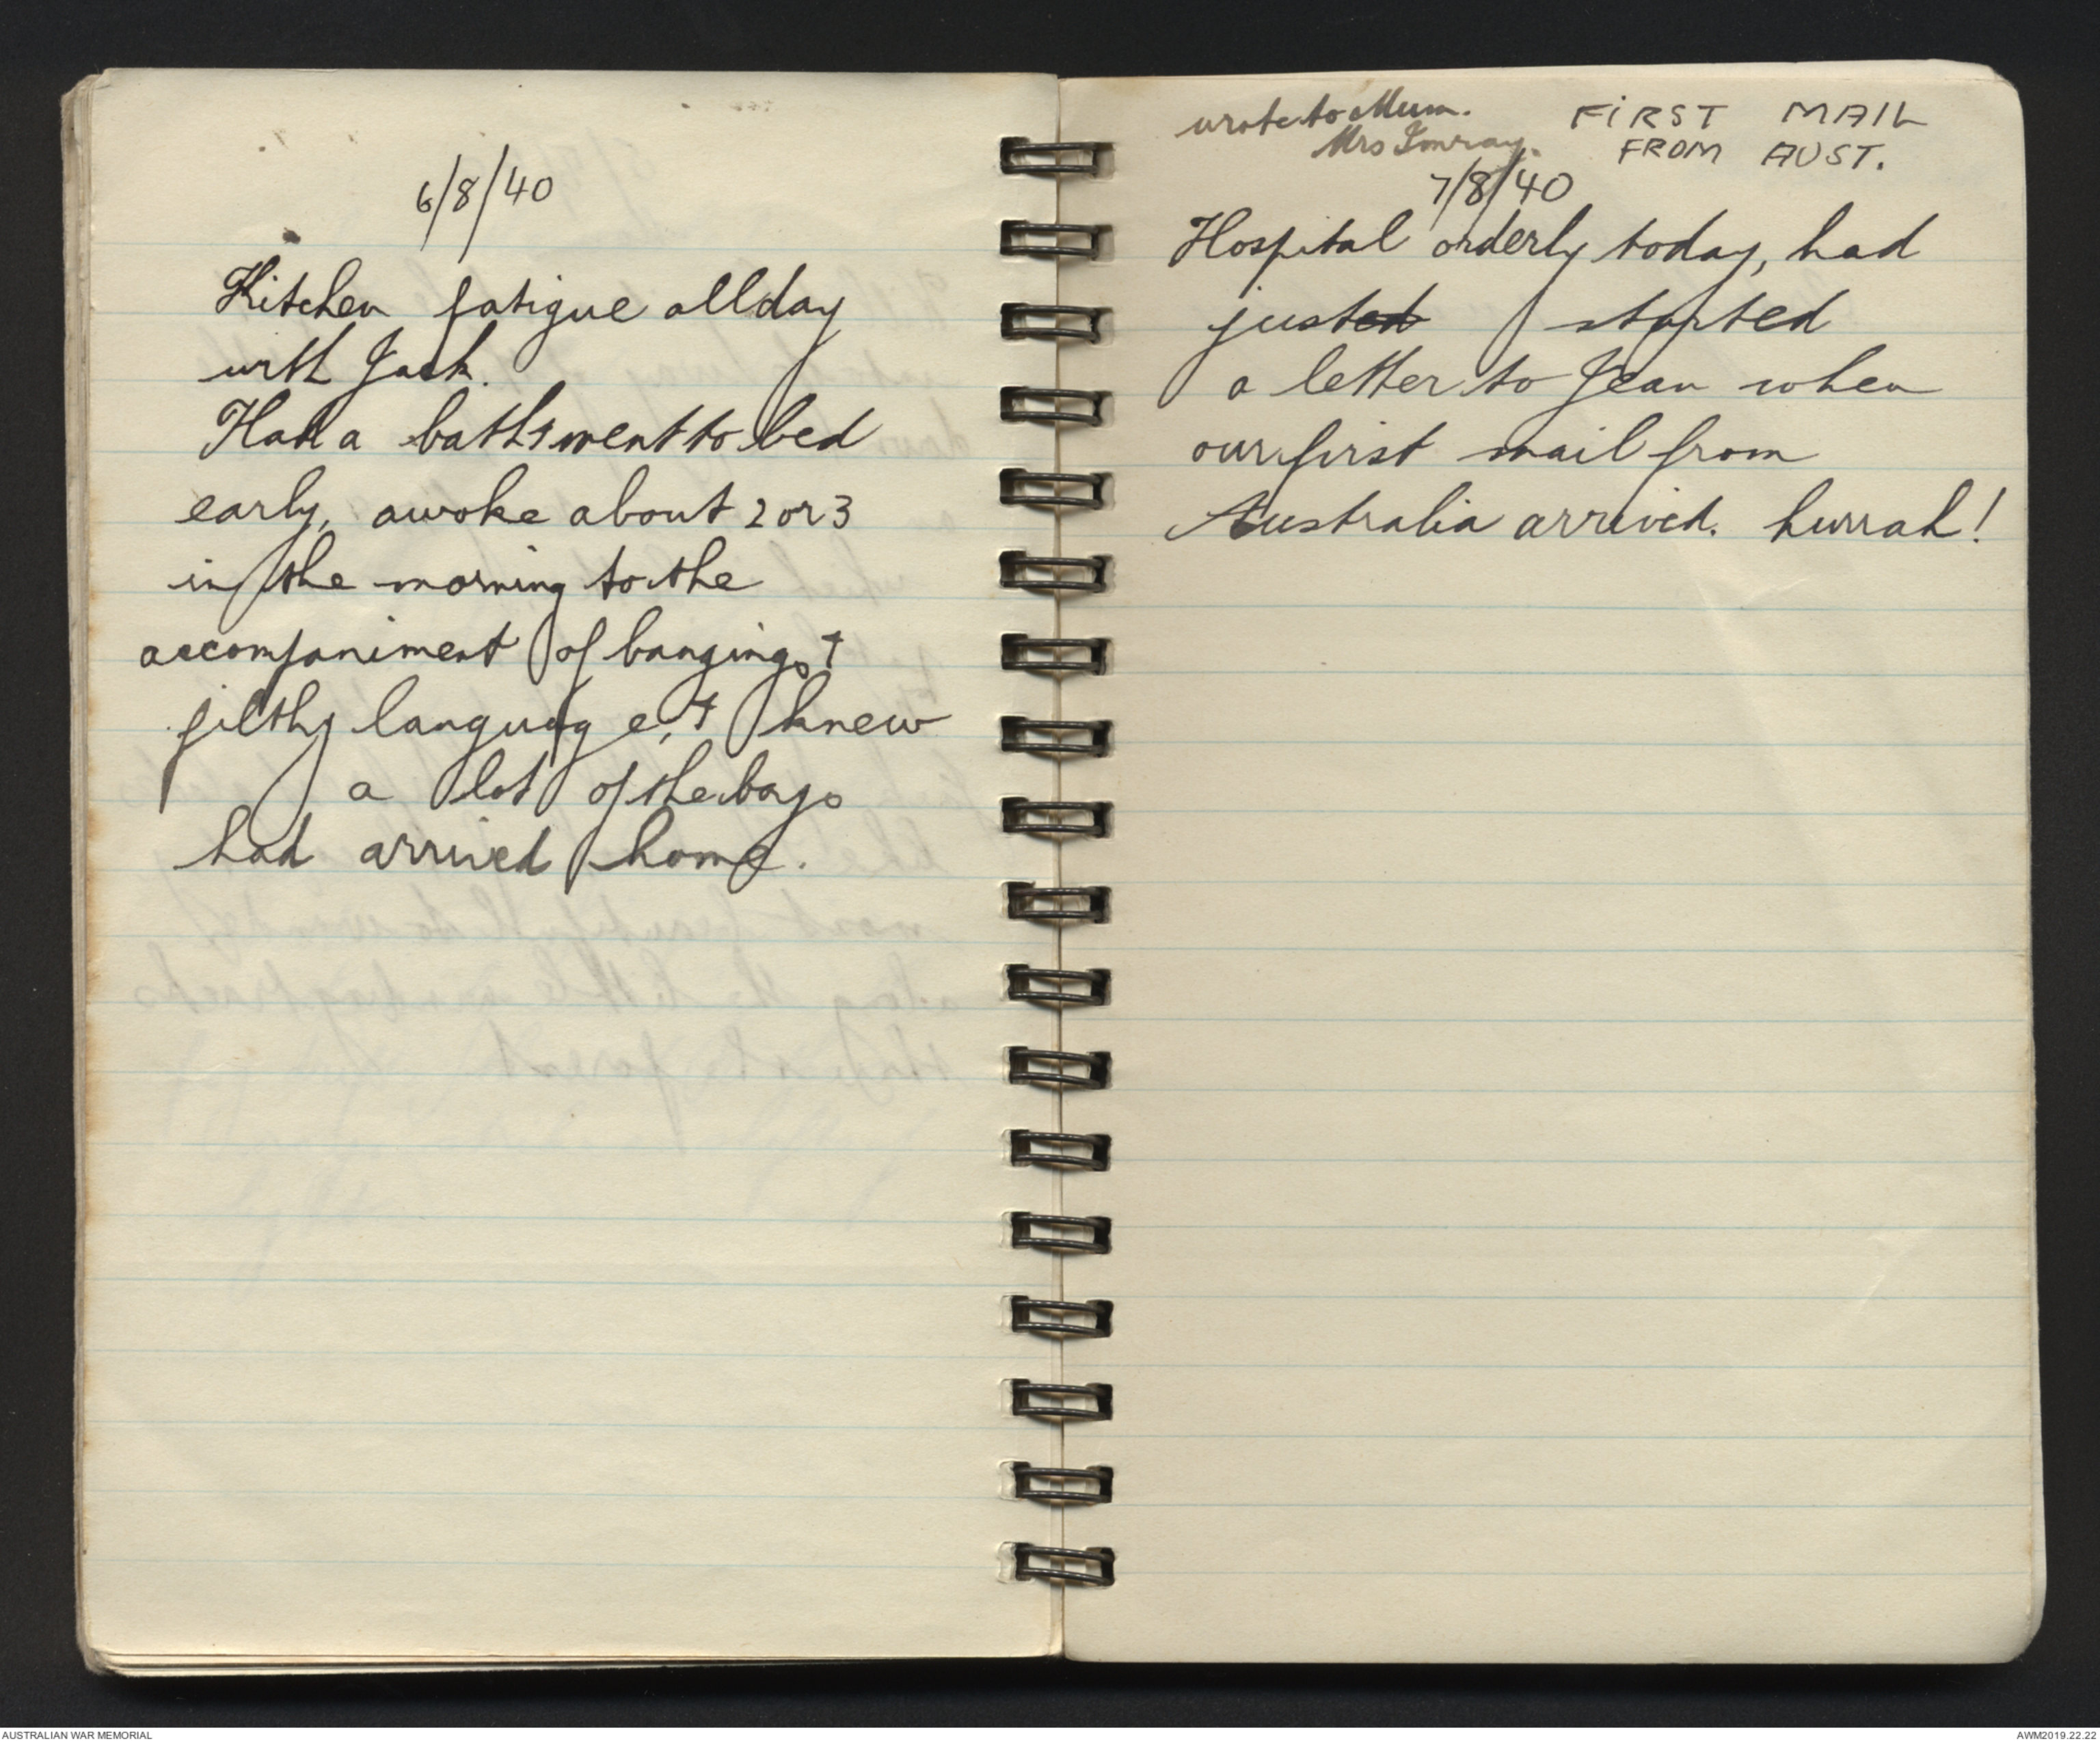 6/8/40
Kitchen fatigue all day
with Jack.
Had a bath & went to bed
early, awoke about 2 or 3
in the morning to the
accompaniment of bangings &
filthy language, & knew
a lot of the boys
had arrived home.
wrote to Mum. FIRST MAIL
Mrs Imray. FROM AUST.
7/8/40
Hospital orderly today, had
justed started
a letter to Jean when
our first mail from
Australia arrived. hurrah!
AUSTRALIAN WAR MEMORIAL
AWM2019.22.22